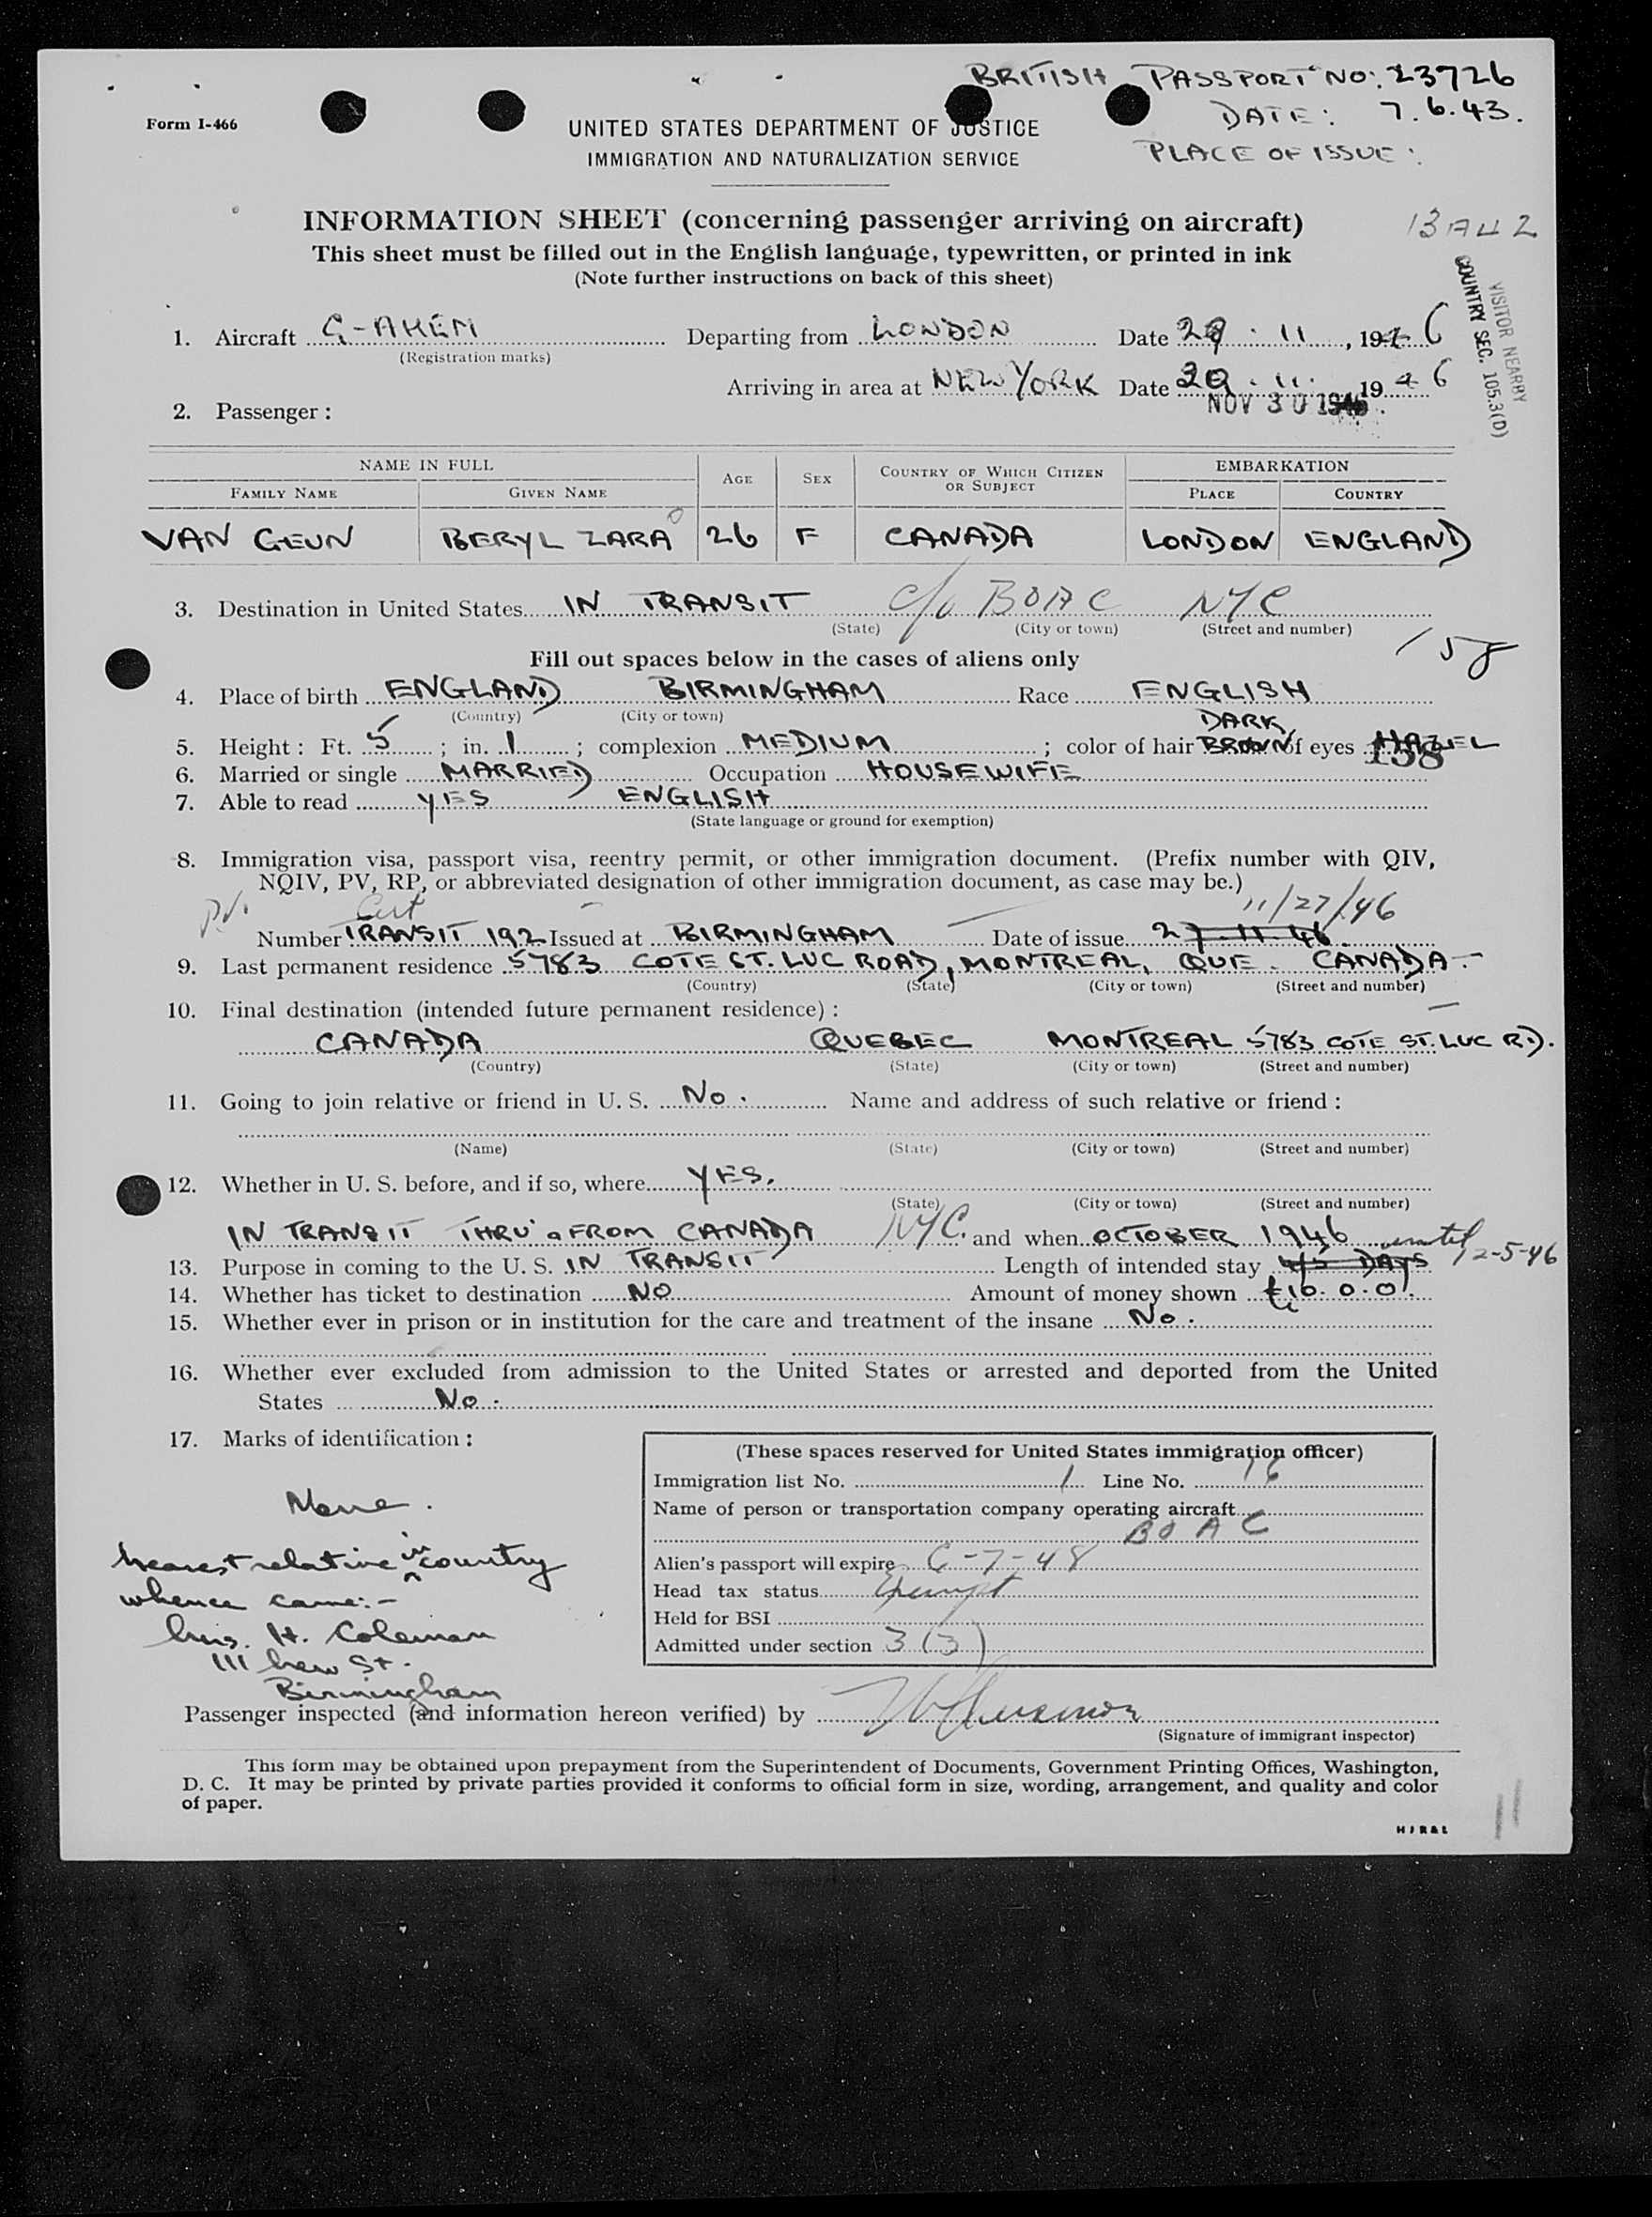 BRITISH PASSPORT NO: 23726
DATE: 7.6.43.
PLACE OF ISSUE:
Form I-466
UNITED STATES DEPARTMENT OF JUSTICE
IMMIGRATION AND NATURALIZATION SERVICE
INFORMATION SHEET (concerning passenger arriving on aircraft)
This sheet must be filled out in the English language, typewritten, or printed in ink
(Note further instructions on back of this sheet)
VISITOR NEARBY
COUNTRY SEC. 105.3(D)
1. Aircraft G-AHEM Departing from LONDON Date 29. 11, 1946
(Registration marks)
Arriving in area at NEW YORK Date 11. 1946
NOV 30 1946
2. Passenger:
NAME IN FULL AGE SEX COUNTRY OF WHICH CITIZEN OR SUBJECT EMBARKATION
FAMILY NAME GIVEN NAME PLACE COUNTRY
VAN GEUN BERYL ZARA 26 F CANADA LONDON ENGLAND
3. Destination in United States IN TRANSIT c/o BOAC NYC
(State) (City or town) (Street and number)
158
Fill out spaces below in the cases of aliens only
4. Place of birth ENGLAND BIRMINGHAM Race ENGLISH
(Country) (City or town)
DARK
5. Height: Ft. 5; in. 1; complexion MEDIUM; color of hair BROWN of eyes HAZEL
138
6. Married or single MARRIED Occupation HOUSEWIFE
7. Able to read YES ENGLISH
(State language or ground for exemption)
8. Immigration visa, passport visa, reentry permit, or other immigration document. (Prefix number with QIV,
NQIV, PV, RP, or abbreviated designation of other immigration document, as case may be.)
PV. Cert 11/27/46
Number TRANSIT 192 Issued at BIRMINGHAM Date of issue 27.11.46.
9. Last permanent residence 5783 COTE ST. LUC ROAD, MONTREAL, QUE. CANADA.
(Country) (State) (City or town) (Street and number)
10. Final destination (intended future permanent residence):
CANADA QUEBEC MONTREAL 5783 COTE ST. LUC RD.
(Country) (State) (City or town) (Street and number)
11. Going to join relative or friend in U. S. No. Name and address of such relative or friend:
(Name) (State) (City or town) (Street and number)
12. Whether in U. S. before, and if so, where YES.
(State) (City or town) (Street and number)
IN TRANSIT THRU' & FROM CANADA NYC. and when OCTOBER 1946
until 12-5-46
13. Purpose in coming to the U. S. IN TRANSIT Length of intended stay 4/5 DAYS
14. Whether has ticket to destination NO Amount of money shown £10.0.0.
15. Whether ever in prison or in institution for the care and treatment of the insane No.
16. Whether ever excluded from admission to the United States or arrested and deported from the United
States No.
17. Marks of identification:
None.
nearest relative in country
whence came:-
Mrs. H. Coleman
111 New St.
Birmingham
(These spaces reserved for United States immigration officer)
Immigration list No. 1 Line No. 16
Name of person or transportation company operating aircraft
BOAC
Alien's passport will expire 6-7-48
Head tax status Exempt
Held for BSI
Admitted under section 3(3)
Passenger inspected (and information hereon verified) by
(Signature of immigrant inspector)
This form may be obtained upon prepayment from the Superintendent of Documents, Government Printing Offices, Washington,
D. C. It may be printed by private parties provided it conforms to official form in size, wording, arrangement, and quality and color
of paper.